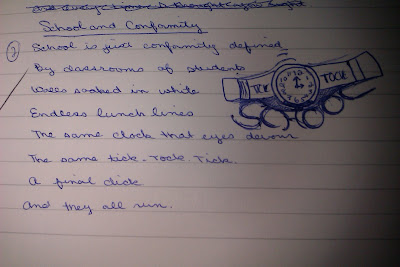 School and Conformity
School is just conformity defined
By classrooms of students
Walls soaked in white
Endless lunch lines
The same clock that eyes devour
The same tick-Tock. Tick.
A final click
And they all run.
TICK
TOCK